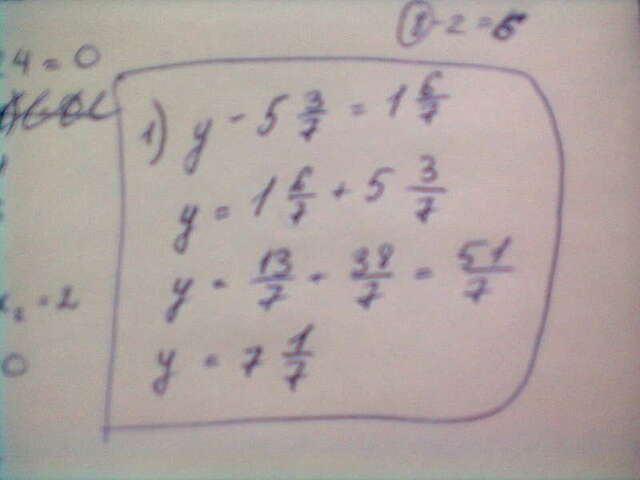 8 - 2 = 6
24 = 0
1) y - 5 3/7 = 1 6/7
y = 1 6/7 + 5 3/7
y = 13/7 - 38/7 = 51/7
= 2
y = 7 1/7
0